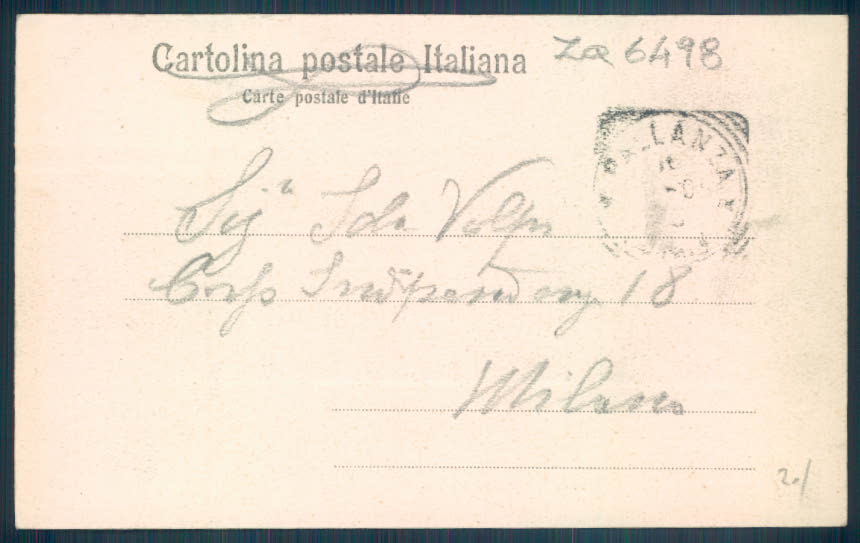 Cartolina postale Italiana
Za 6498
Carte postale d'Italie
PALLANZA
Sigra Ida Volpi
Corso Indipendenza 18
Milano